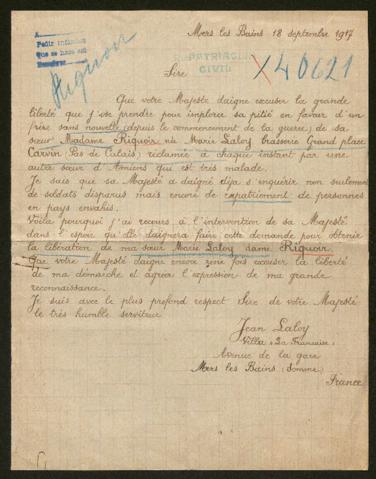 Mers les Bains 18 septembre 1917
A
Pedir informes
que se hace saber
Riguoir
REPATRIACION
CIVIL
X 40621
Sire
Que votre Majesté daigne excuser la grande
liberté que j'ose prendre pour implorer sa pitié en faveur d'un
frère sans nouvelle (depuis le commencement de la guerre) de sa
sœur Madame Riguoir née Marie Laloy brasserie Grand place
Carvin (Pas de Calais) réclamée à chaque instant par une
autre sœur d'Amiens qui est très malade.
Je sais que sa Majesté a daigné déjà s'enquérir non seulement
de soldats disparus mais encore de rapatriement de personnes
en pays envahis.
Voilà pourquoi j'ai recours à l'intervention de sa Majesté
dans l'espoir qu'elle daignera faire cette demande pour obtenir
la libération de ma sœur Marie Laloy dame Riguoir.
Que votre Majesté daigne encore une fois excuser la liberté
de ma démarche et agréer l'expression de ma grande
reconnaissance.
Je suis avec le plus profond respect Sire de votre Majesté
le très humble serviteur
Jean Laloy
Villa "La Française"
Avenue de la gare
Mers les Bains (Somme)
France